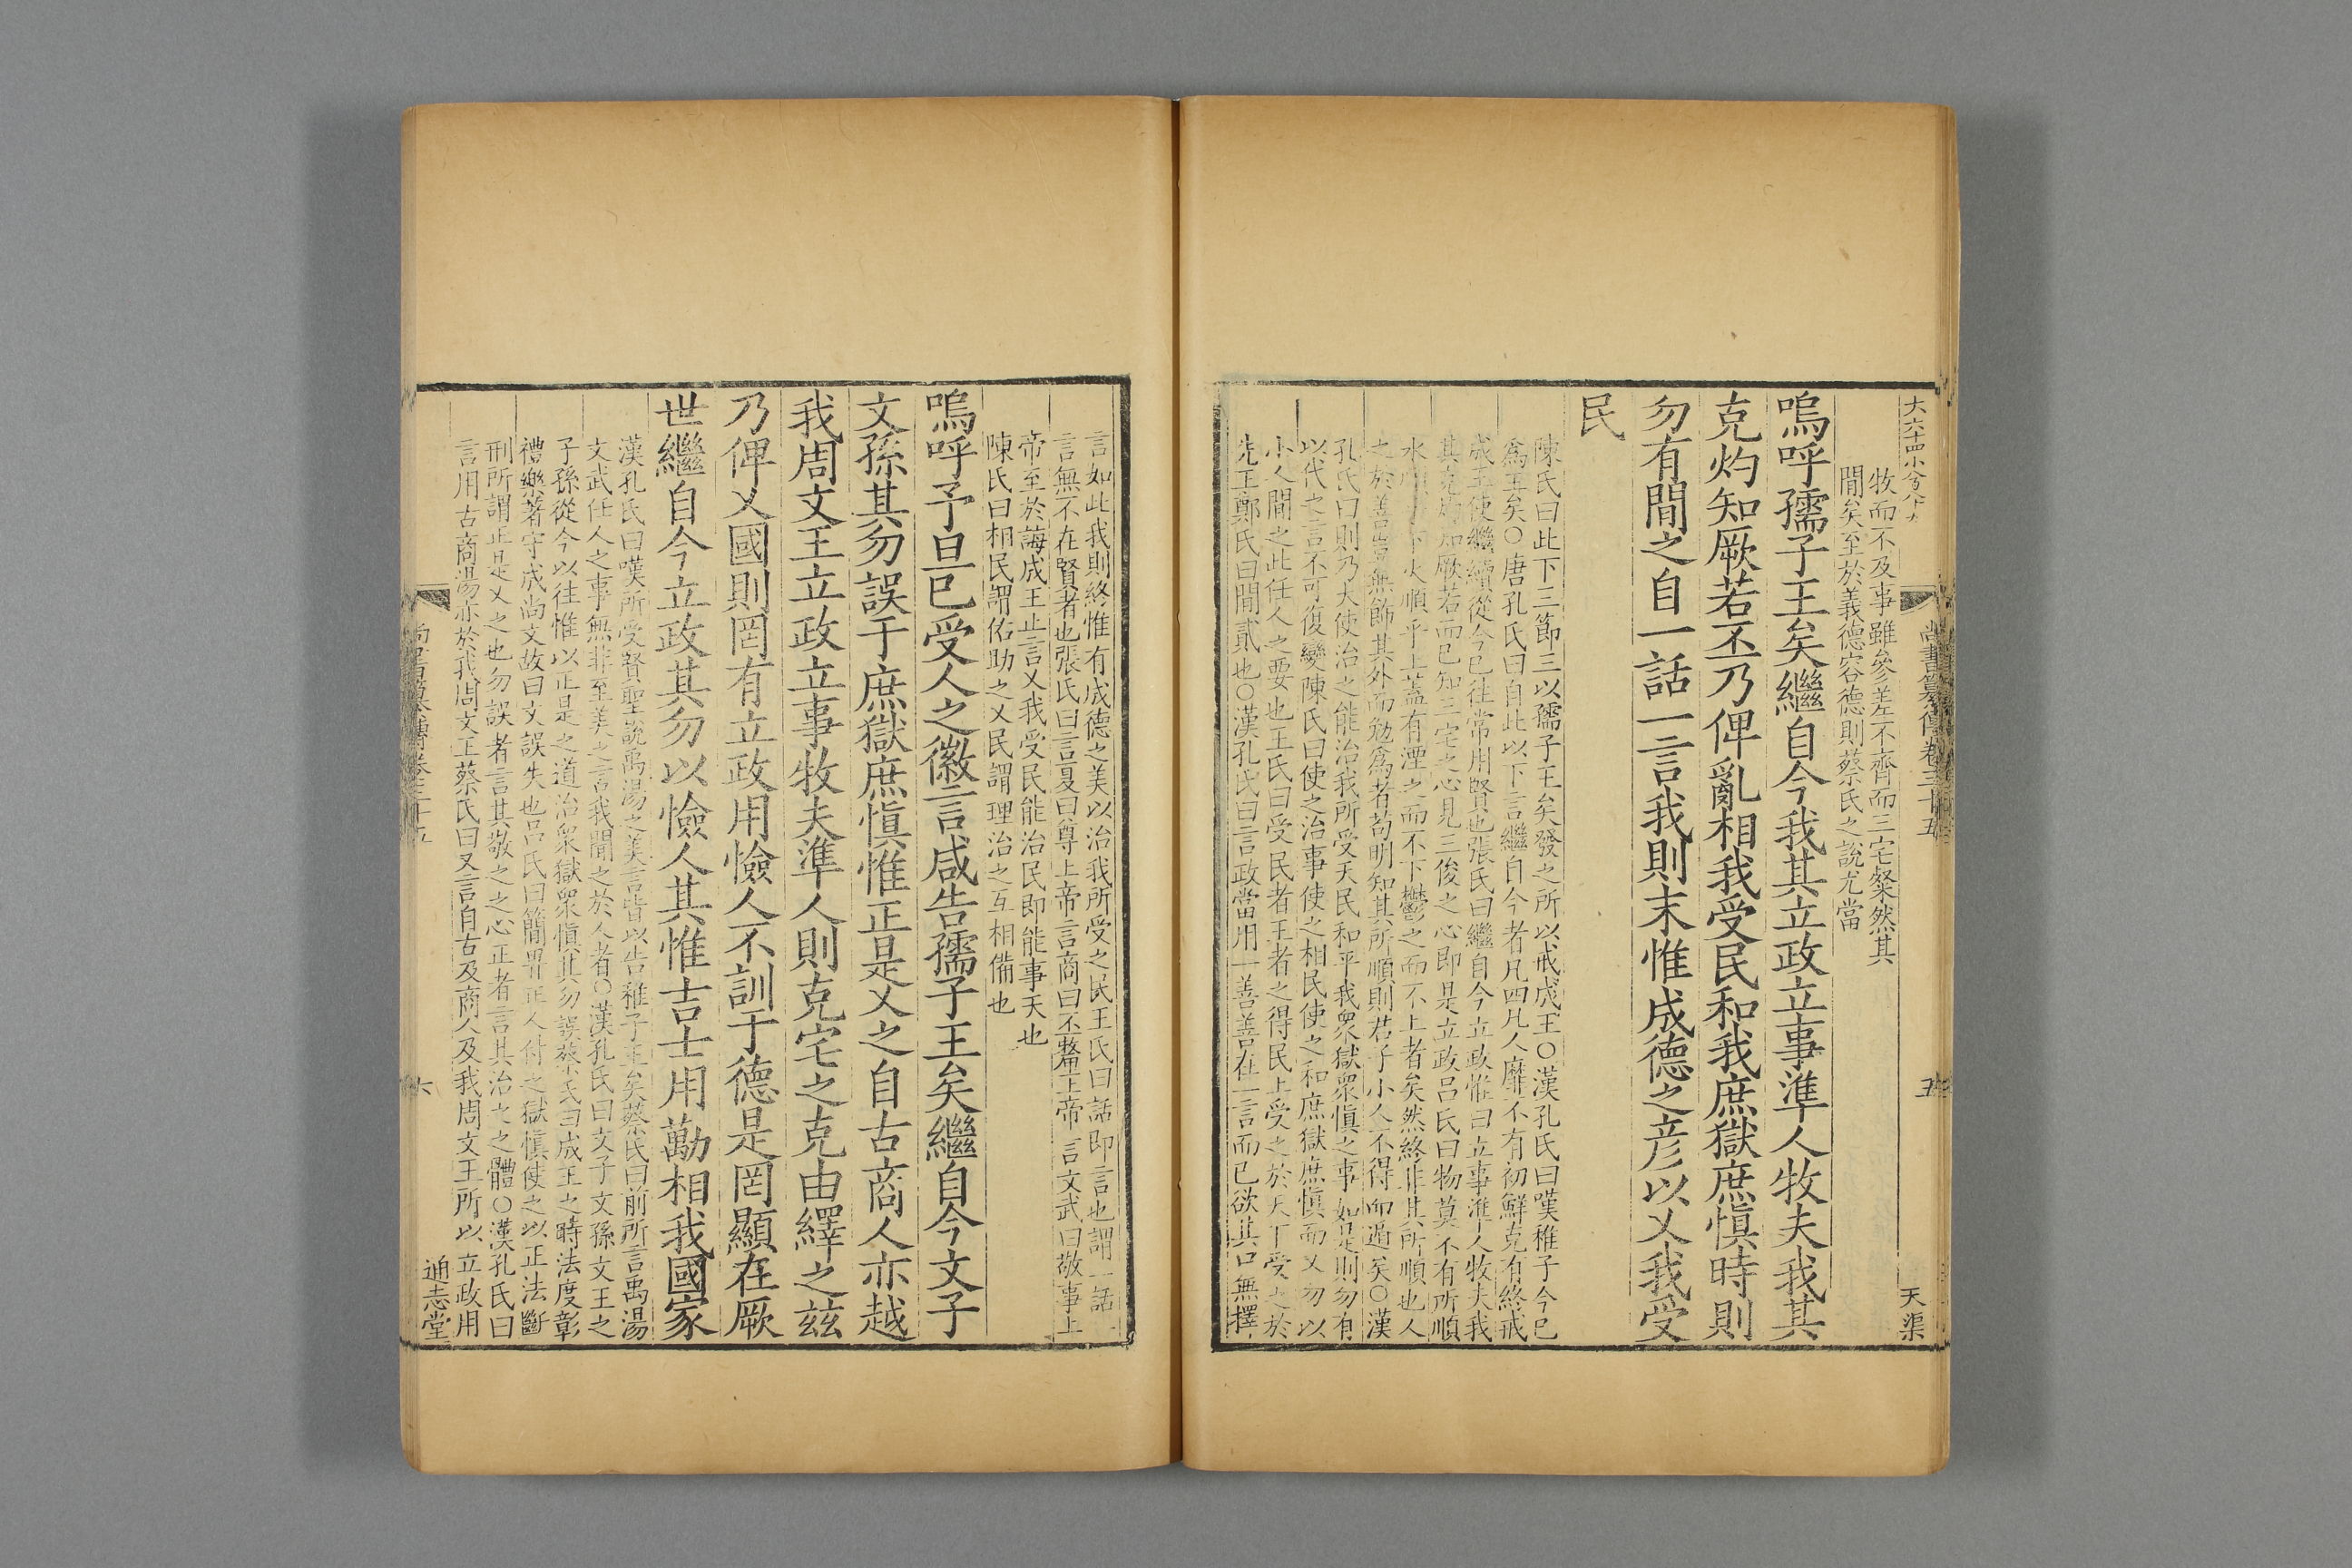 大六十四小
尚書纂傳卷三十五
五
天渠
牧而不及事雖參差不齊而三宅粲然其
間矣至於義德容德則蔡氏之說尤當
嗚呼孺子王矣繼自今我其立政立事準人牧夫我其
克灼知厥若丕乃俾亂相我受民和我庶獄庶慎時則
勿有間之自一話一言我則末惟成德之彥以乂我受
民
陳氏曰此下三節三以孺子王矣發之所以戒成王○漢孔氏曰嘆稚子今已
爲王矣○唐孔氏曰自此以下言繼自今者凡四凡人靡不有初鮮克有終戒
成王使繼續從今已往常用賢也張氏曰繼自今立政惟曰立事準人牧夫我
其克灼知厥若而已知三宅之心見三俊之心即是立政呂氏曰物莫不有所順
水順下火順乎上蓋有湮之而不下鬱之而不上者矣然終非其所順也人
之於善無飾其外而勉爲者苟明知其所順則君子小人不得而遁矣○漢
孔氏曰則乃大使治之能治我所受天民和平我衆獄衆慎之事如是則勿有
以代之言不可復變陳氏曰使之治事使之相民使之和庶獄庶慎而又勿以
小人間之此任人之要也王氏曰受民者王者之得民上受之於天下受之於
先王鄭氏曰間貳也○漢孔氏曰言政當用一善善在一言而已欲其口無擇
言如此我則終惟有成德之美以治我所受之民王氏曰話即言也謂一話一
言無不在賢者也張氏曰言夏曰尊上帝言商曰丕釐上帝言文武曰敬事上
帝至於誨成王止言乂我受民能治民即能事天也
陳氏曰相民謂佑助之乂民謂理治之互相備也
嗚呼予旦已受人之徽言咸告孺子王矣繼自今文子
文孫其勿誤于庶獄庶慎惟正是乂之自古商人亦越
我周文王立政立事牧夫準人則克宅之克由繹之茲
乃俾乂國則罔有立政用憸人不訓于德是罔顯在厥
世繼自今立政其勿以憸人其惟吉士用勱相我國家
漢孔氏曰嘆所受賢聖說禹湯之美言皆以告稚子王矣蔡氏曰前所言禹湯
文武任人之事無非至美之言我聞之於人者○漢孔氏曰文子文孫文王之
子孫從今以往惟以正是之道治衆獄衆慎其勿誤蔡氏曰成王之時法度彰
禮樂著守成尚文故曰文誤失也呂氏曰簡畀正人付之獄慎使之以正法斷
刑所謂正是乂之也勿誤者言其敬之之心正者言其治之之體○漢孔氏曰
言用古商湯亦於我周文王蔡氏曰又言自古及商人及我周文王所以立政用
尚書纂傳卷三十五
六
通志堂